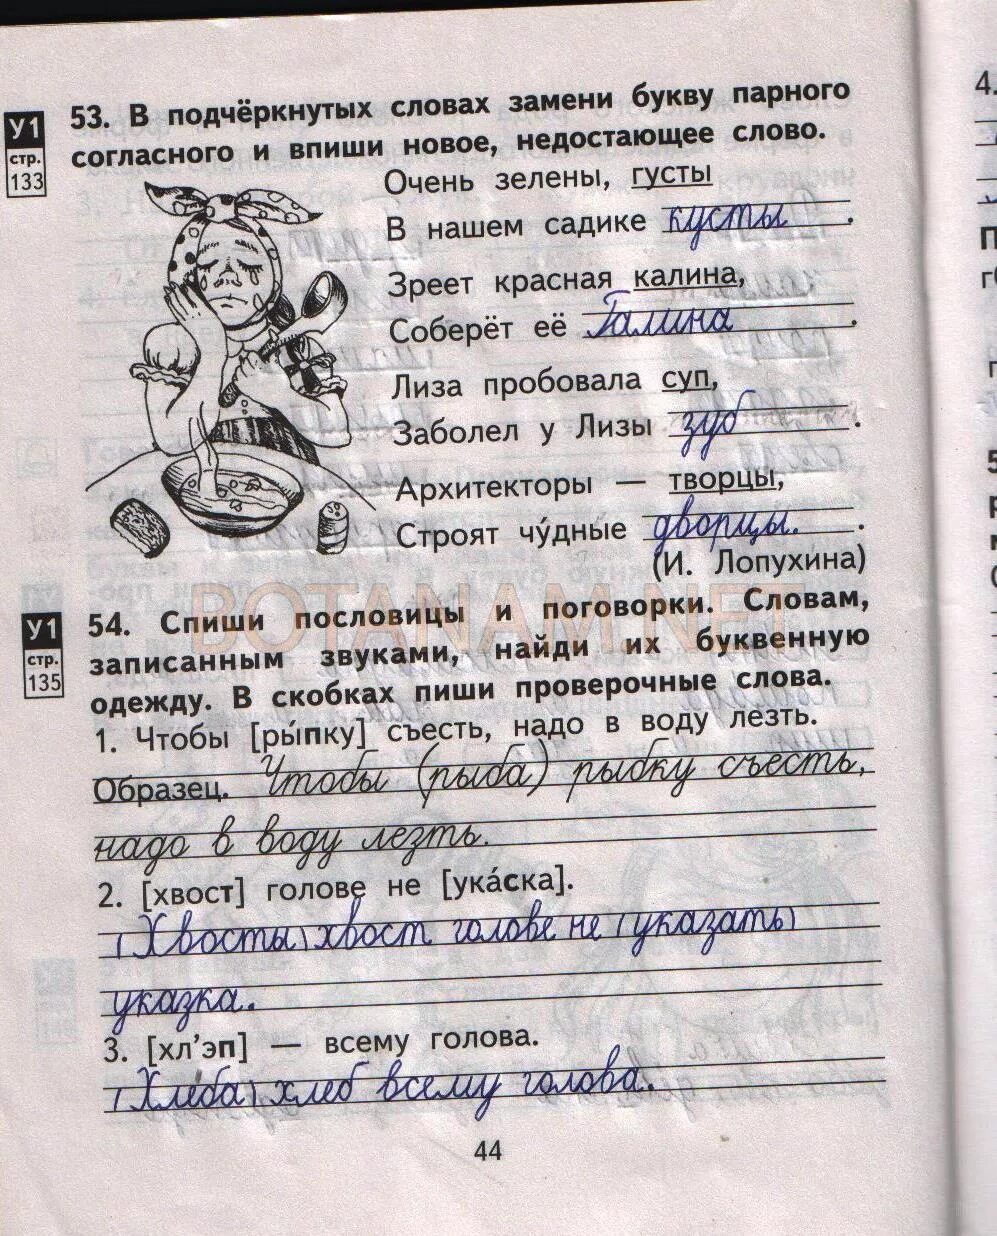 53. В подчёркнутых словах замени букву парного
У1
стр.
133
согласного и впиши новое, недостающее слово.
Очень зелены, густы
В нашем садике кусты.
Зреет красная калина,
Соберёт её Галина.
Лиза пробовала суп,
Заболел у Лизы зуб.
Архитекторы — творцы,
Строят чу́дные дворцы.
(И. Лопухина)
BOTANAM.NET
У1
стр.
135
54. Спиши пословицы и поговорки. Словам,
записанным звуками, найди их буквенную
одежду. В скобках пиши проверочные слова.
1. Чтобы [ры́пку] съесть, надо в воду лезть.
Образец. Чтобы (рыба) рыбку съесть,
надо в воду лезть.
2. [хвост] голове не [ука́ска].
(Хвосты) хвост голове не (указать)
указка.
3. [хл’эп] — всему голова.
(Хлеба) хлеб всему голова.
44
4.